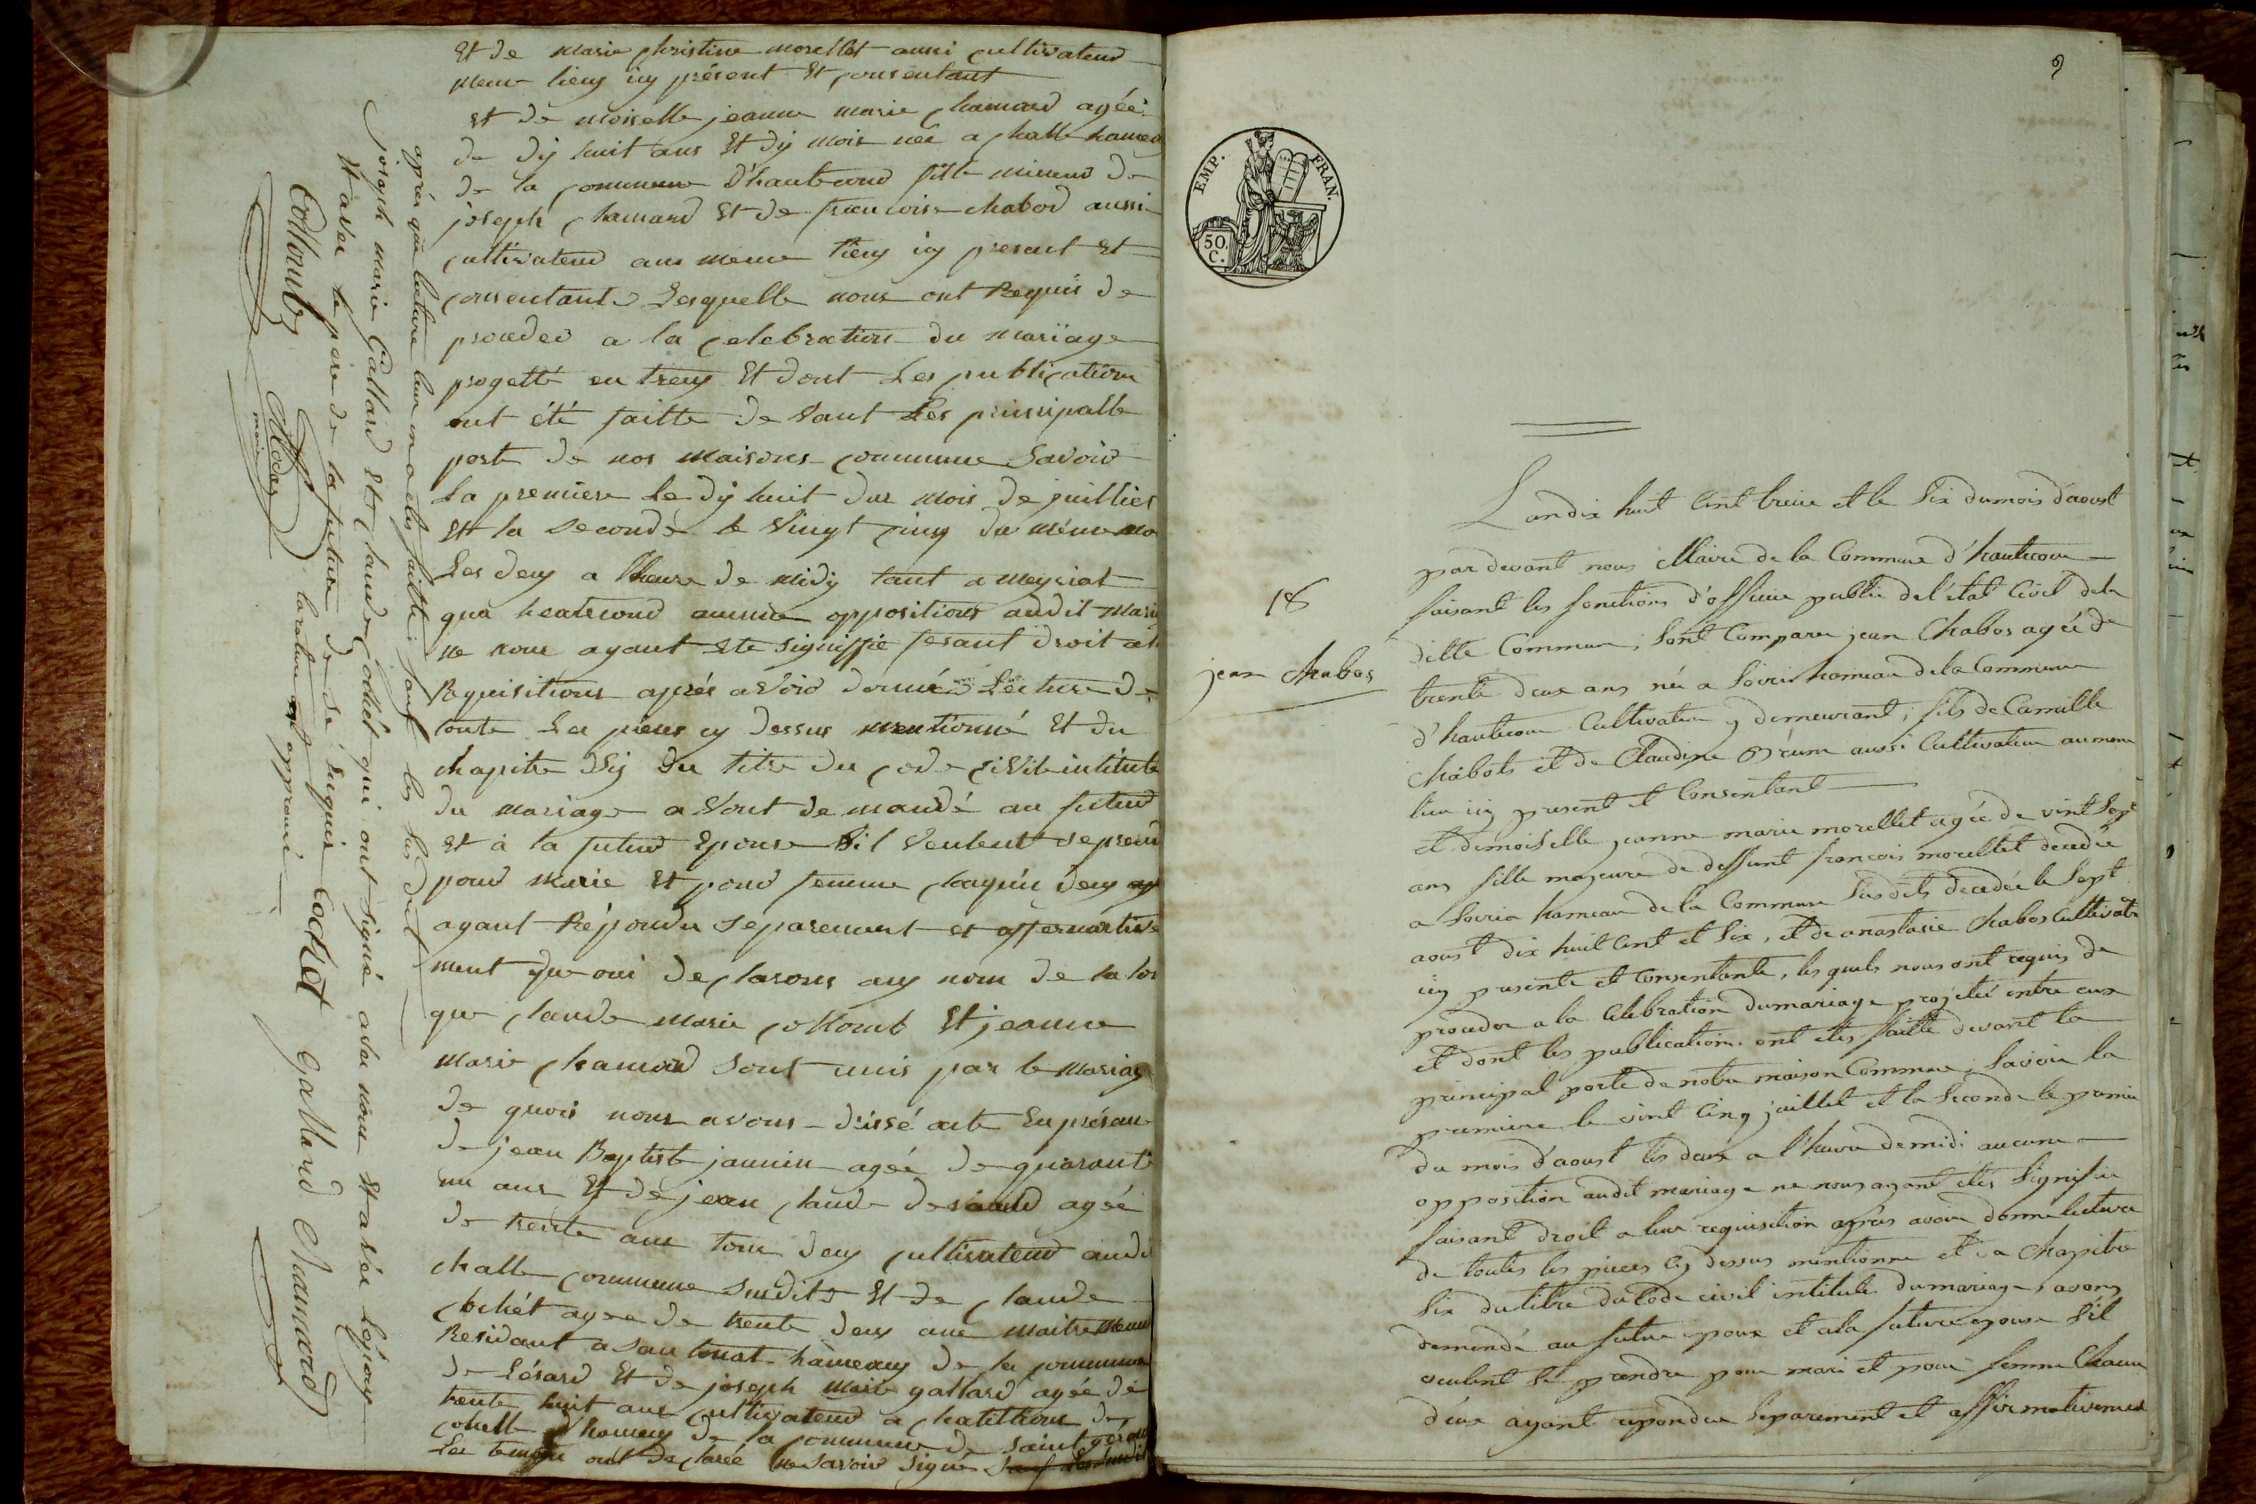 Et de marie christine morellet aussi cultivateur
meme lieux icy présent Et consentant
et de moiselle jeanne marie chamard agée
de dix huit ans Et dix mois née a challe hameau
de la commune D'hautecour fille mineur de
joseph chamard Et de francoise chabod aussi
cultivateur aus meme lieux icy present Et
consentant Lesquelle nous ont Requis de
proceder a la celebration du mariage
progetté en treux Et dont Les publication
ont été faitte de vant Les prinsipalle
porte de nos maisons commune Savoir
La premiere Le dix huit dus mois de juillier
Et la seconde le vingt cinq du même mo
Les deux a lheure de midy tant a meyriat
qua heautecour aucune oppositions audit mariag
ne nous ayant Ete signiffie fesant droit a leur
Requisitions aprés avoir donné Lecture de
toute Les pieces cy Dessus mentionné Et du
chapitre Six Du titre Du code civile intitulé
Du mariage a vont de mandé au futur
Et à la futur Epouse S'il veulent se prend
pour marie Et pour femme chaqun deux
ayant Répondu separement et affermative
ment que oui declarons aux nom de la loi
que claude marie collomb Et jeanne
marie chamard sont unis par le mariag
De quois nous avons dréssé acte En présance
De jean Baptiste jannin agée de quarante
un ans Et de jean claude agée
de trente ans tous deux cultivateur audit
challe commune susdite Et de claude
cochét agée de trente deux ans maitre
Residant a hameaux de la commune
de Et de joseph marie gallard agée de
trente huit ans cultivateur a chatillion de
hameaux de la commune de saint
Les temoin ont declarée ne savoir signé
après que lecture leur en a etés faitte; sauf les susdit
joseph marie Gallard Et claude Cochét qui ont signé avec nous Et avec
Et avec le père de la future de ce requis
Collomb
maire
la rature approuvé
Cochet
Gallard
Chamard
EMP.
FRAN.
50
C.
18
jean chabos
L'an dix huit cent treize et le Six du mois d'aoust
par devant nous Maire de la Commune d'hautecour
faisant les fonctions d'officier public de l'état Civil de la
ditte Commune; sont Comparu jean Chabos agée de
trente deux ans née a Soiria hameau de la Commune
d'hautecour Cultivateur y demeurant; fils de Camille
Chabots et de Claudine aussi Cultivateur au meme
lieu icy present et Consentant
et demoiselle jeanne marie morellet agée de vint Sept
ans fille majeure de deffunt francois morellet decedée
a Soiria hameau de la Commune Susdits decedée le Sept
aoust dix huit cent et Six, et de anastasie Chabos Cultivatr
icy presente et Consentente, les quels nous ont requis de
proceder a la Celebration du mariage projetté entre eux
et dont les publications ont etés faitte devant la
principal porte de notre maison Commune, Savoir la
premiere le vint Cinq juillet et la Seconde le premier
du mois d'aoust les deux a l'heure de midi aucune
opposition audit mariage ne nous ayant etés Signifiée
faisant droit a leur requisition après avoir donné lecture
de toutes les pieces cy dessus mentionné et du Chapitre
Six du titre du Code civil intitulé du mariage, avons
demandé au futur epoux et a la future epouse S'il
veulent Se prendre pour mari et pour femme Chacun
d'eux ayant repondu Separement et affirmativement